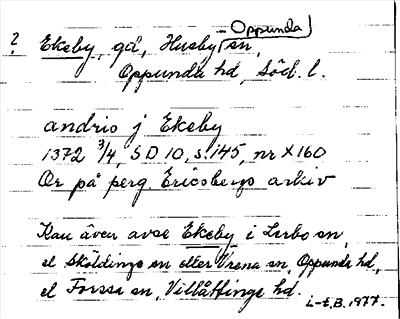 ? Ekeby, gå, Husby-Oppunda sn,
Oppunda hd, Söd. l.
andrio j Ekeby
1372 3/4, SD 10, s. 145, nr X160
Or på perg. Ericsbergs arkiv
Kan även avse Ekeby i Lerbo sn,
el Sköldinge sn eller Vrena sn, Oppunda hd,
el Forssa sn, Villåttinge hd.
i-t, B. 1977.